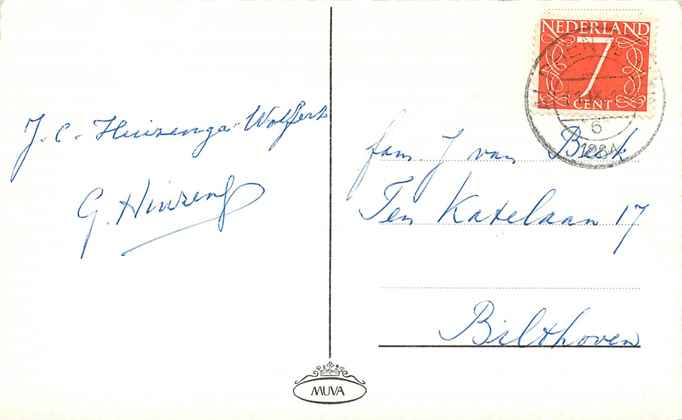 J. C. Huizenga-Wolfert
G. Huizenga
NEDERLAND
7
CENT
6
1964
fam. J van Beek.
Ten Katelaan 17
Bilthoven
MUVA